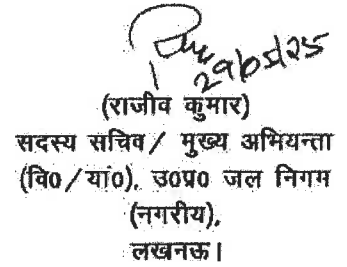 29/05/25
(राजीव कुमार)
सदस्य सचिव/ मुख्य अभियन्ता
(वि0/यां0), उ0प्र0 जल निगम
(नगरीय),
लखनऊ।